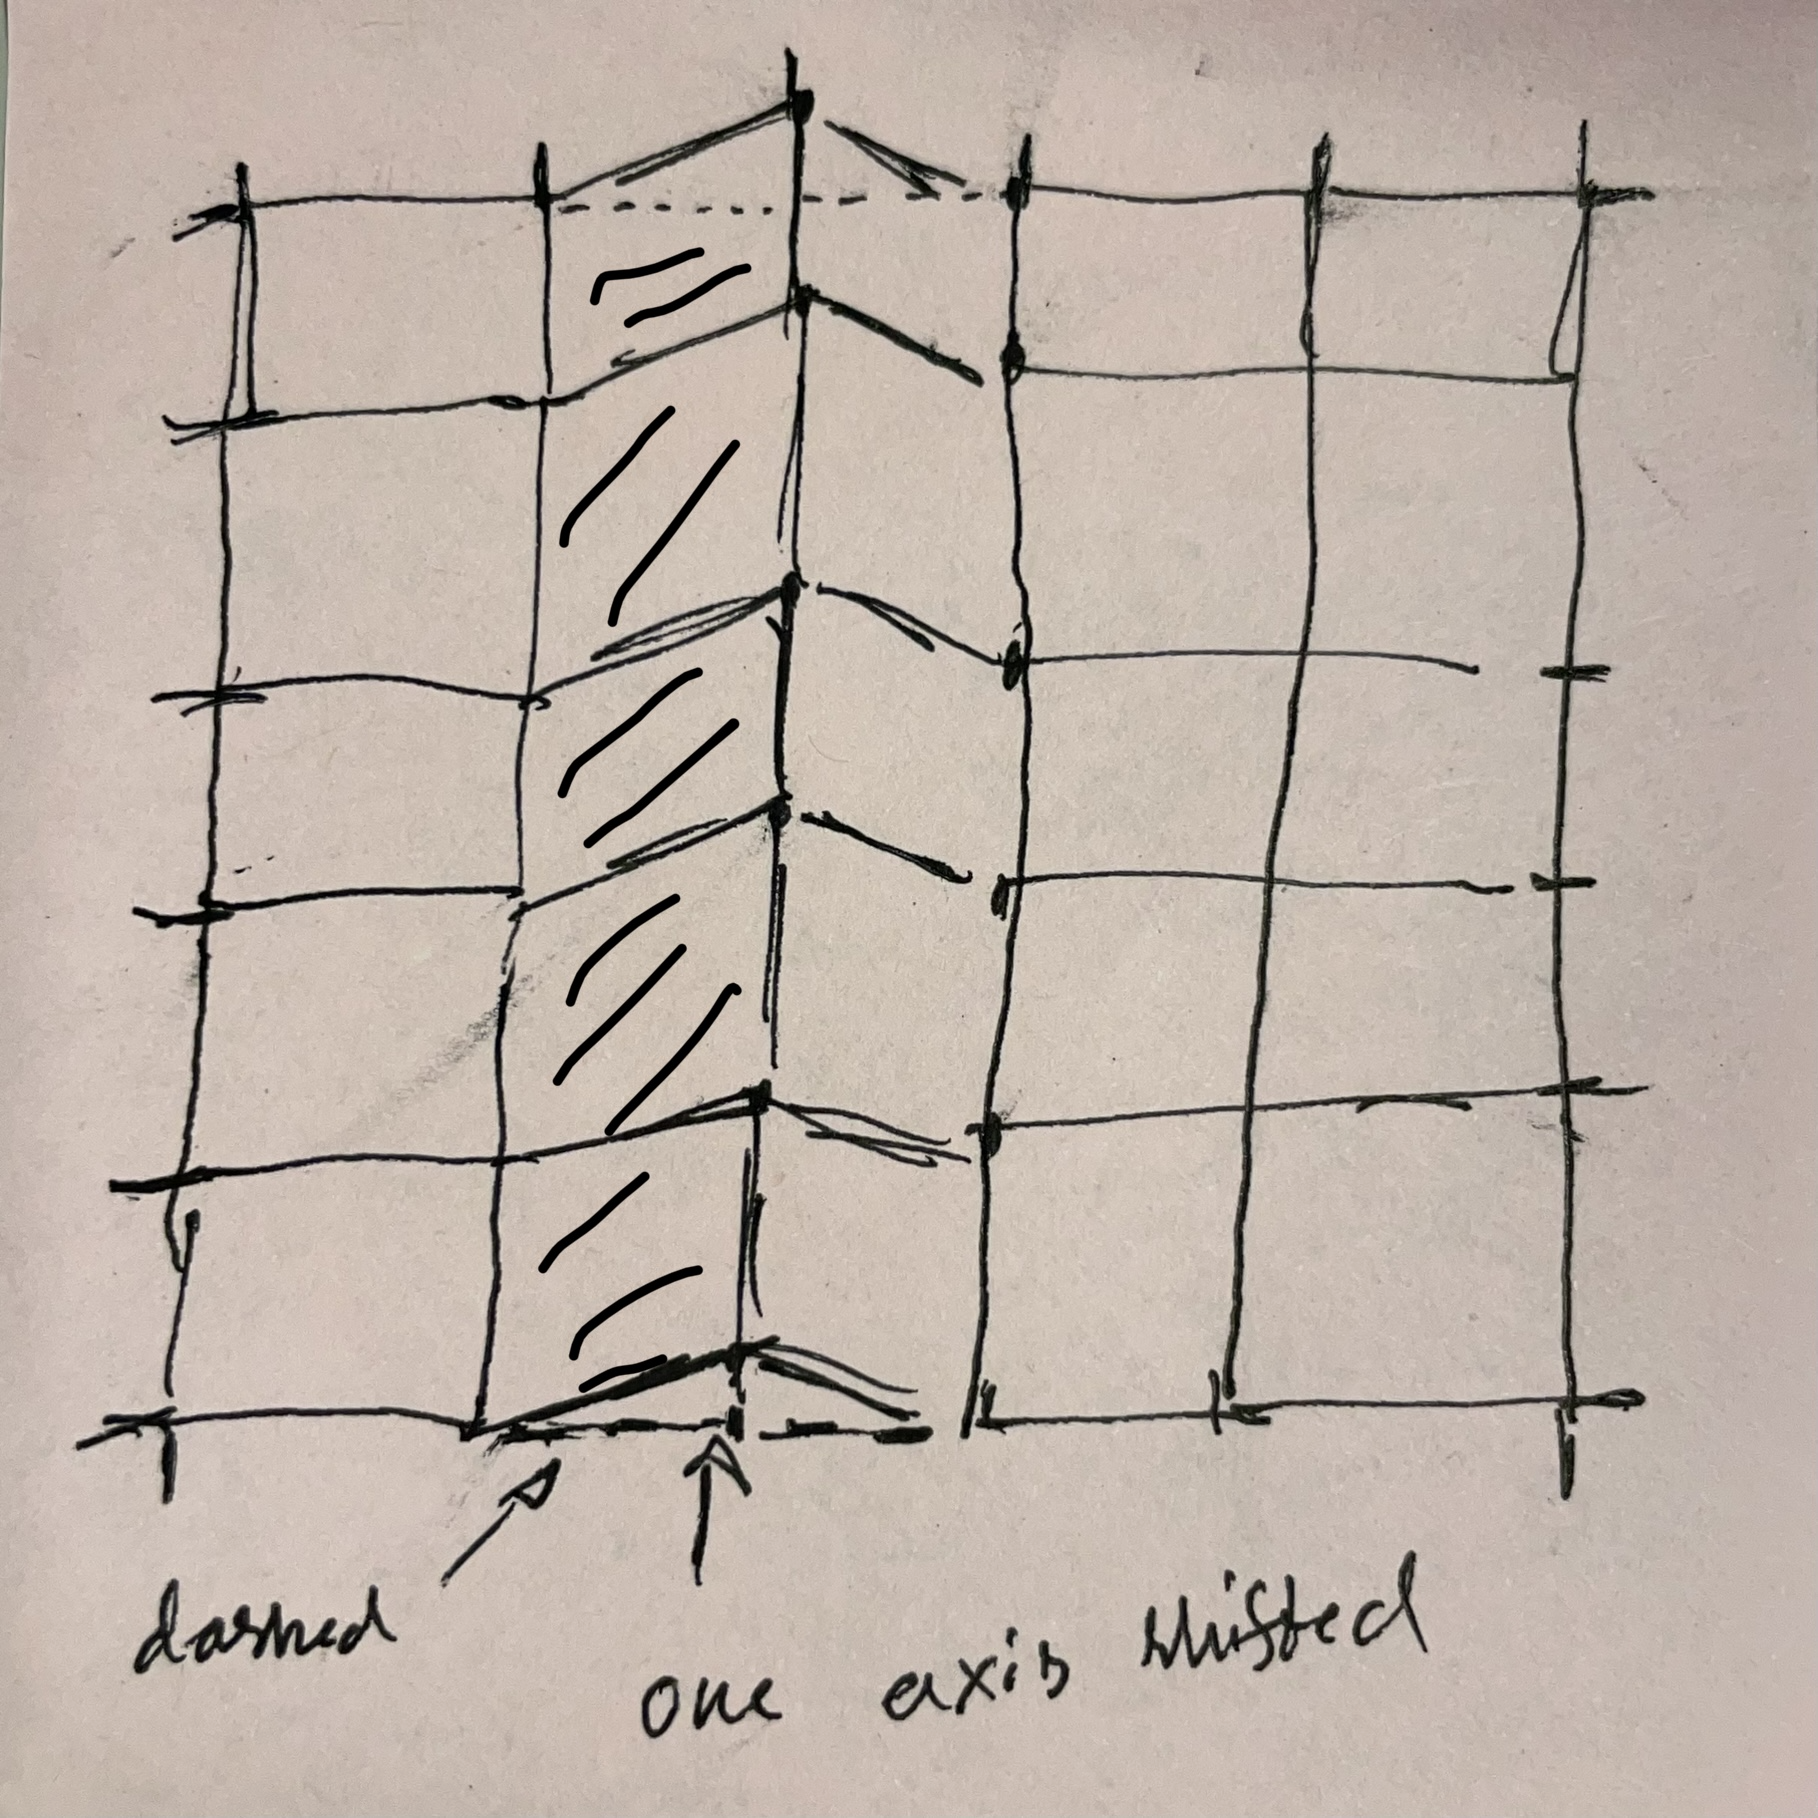 dashed
one axis shifted